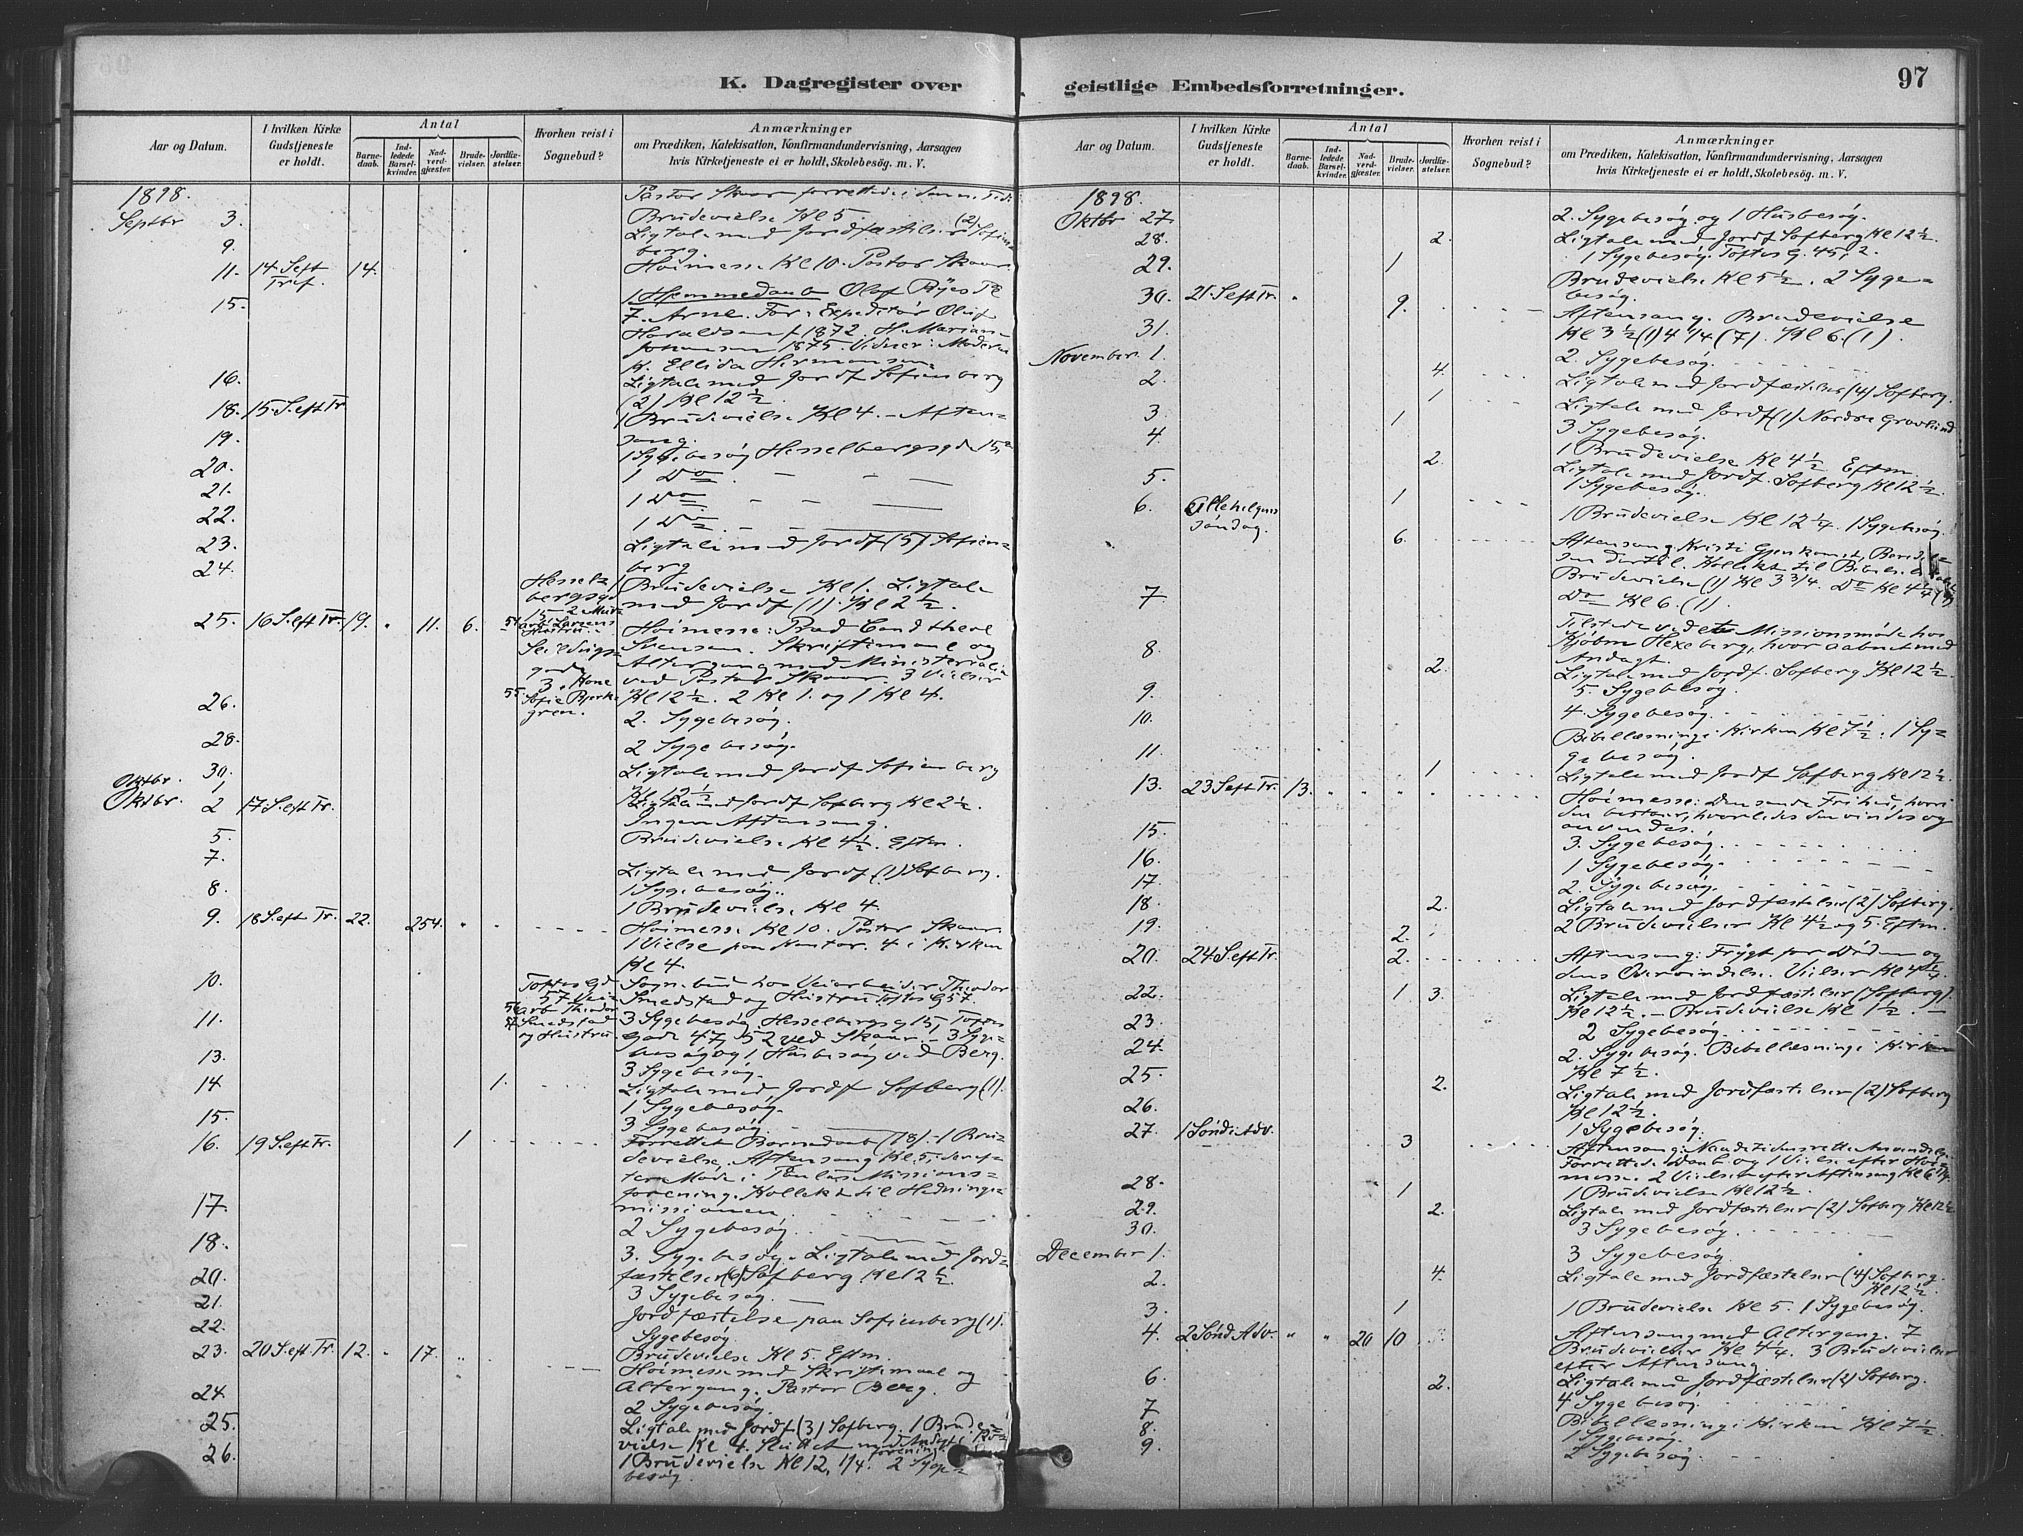 K. Dagregister over
Aar og Datum.
I hvilken Kirke Gudstjeneste er holdt.
Antal
Barnedaab.
Indledede Barselkvinder.
Nadverdgjæster.
Brudevielser.
Jordfæstelser.
Hvorhen reist i Sognebud?
Anmærkninger
om Prædiken, Katekisation, Konfirmandundervisning, Aarsagen
hvis Kirketjeneste ei er holdt, Skolebesög. m. V.
1898.
Pastor Skaar forretter i Sann. Tid
Septbr 3. Brudevielse Kl 5.
9. Ligtale med Jordfæstelser (2) Sofienberg.
11. 14 S. eft Tref. 14. Höimesse Kl 10. Pastor Skaar.
15. 1 Hjemmedaab Olaf Ryes Pl
7. Arne. For: Expeditör Oluf
Haraldsen f 1872. H. Marianne
Johansen 1875. Vidner: Moderen
K. Ellida Hermansen
16. Ligtale med Jordf Sofienberg
(2) Kl 12 ½
18. 15 S. eft Tr 1 Brudevielse Kl 4. Aftensang.
19. 1 Sygebesög Hesselbergsgd 15,2
20. 1 Do — —
21. 1 Do — — —
22. 1 Do
23. Ligtale med Jordf (5) Sofienberg
24. Brudevielse Kl 1. Ligtale
med Jordf (1) Kl 2 ½.
25. 16 S. eft Tr. 19. " 11. 6. Höimesse: Prad Cand theol
Svensen. Skriftemaal og
Altergang med Ministerialia
ved Pastor Skaar. 3 Vielser
Kl 12 ½. 2 Kl 1. og 1 Kl 4.
26. 2. Sygebesög.
28. 2 Sygebesög.
30. Ligtale med Jordf Sofienberg
Kl 12 ½
Oktbr. 1 Ligtale med Jordf Sofberg Kl 2 ½.
Oktbr. 2 17 S. eft Tr. Ingen Aftensang.
5. Brudevielse Kl 4 ½. Eftm.
7. Ligtale med Jordf (1) Sofberg.
1 Sygebesög.
8. 1 Brudevielse Kl 4.
9. 18 S. eft Tr. 22. 254. " Höimesse Kl 10. Pastor Skaar
1 Vielse paa Kontor. 4 i Kirken
Kl 4.
10. Toftes Gd 57 Sognebud hos Veiarbeider Theodor
Smedstad og Hustru Toftes G 57
11. 3 Sygebesög. Hesselbergsg 15, Toftes
gade 47, 52 ved Skaar — 3 Sygebesög
og 1 Husbesög ved Berg.
13. 3 Sygebesög.
14 1. Ligtale med Jordf Sofberg (1).
15. 1 Sygebesög.
3 Sygebesög.
16. 19 S. eft Tr. 1 Forrettet Barnedaab (18). 1 Brudevielse,
Aftensang Kl 5, derefter
Möde i Paulus Missionsforening.
Kollekt til Hedningemissionen.
17. 2 Sygebesög.
18. 3. Sygebesög. Ligtale med Jordfæstelser
Sofberg Kl 12 ½.
20. 3 Sygebesög.
21. Jordfæstelse paa Sofienberg (1).
22. Sygebesög.
Brudevielse Kl 5. Eftm.
23. 20 S. eft Tr. 12. " 17. " Höimesse med Skriftemaal og
Altergang. Pastor Berg.
24. 2 Sygebesög.
25. Ligtale med Jordf (3) Sofberg. 1 Brudevielse
Kl 4.
26. 1 Brudevielse Kl 12, 1/4. 2 Sygebesög.
geistlige Embedsforretninger.
97
Aar og Datum.
I hvilken Kirke Gudstjeneste er holdt.
Antal
Barnedaab.
Indledede Barselkvinder.
Nadverdgjæster.
Brudevielser.
Jordfæstelser.
Hvorhen reist i Sognebud?
Anmærkninger
om Prædiken, Katekisation, Konfirmandundervisning, Aarsagen
hvis Kirketjeneste ei er holdt, Skolebesög. m. V.
1898.
Oktbr 27. 2. Sygebesög og 1 Husbesög.
28. 2. Ligtale med Jordf Sofberg Kl 12 ½.
1 Sygebesög. Toftes G. 45, 2.
29. 1 Brudevielse Kl 5 ½. 2 Sygebesög.
30. 21. S eft Tr. " 9. Aftensang. Brudevielse
Kl 3 ½ (1) 4 1/4 (7). Kl 6. (1).
31. 2. Sygebesög.
November. 1. 4. Ligtale med Jordfæstelser (4) Sofberg.
2. 1 Ligtale med Jordf (1) Nordre Gravlund
3 Sygebesög.
3. 1 1 Brudevielse Kl 4 ½ Eftm.
4. 2. Ligtale med Jordf. Sofberg Kl 12 ½.
1 Sygebesög.
5. 1 1 Brudevielse Kl 12 1/4. 1 Sygebesög.
6. Allehelgens söndag. 6. Aftensang. Kristi Gjenkomst,
dertil. Kollekt til
Brudevielse (1) Kl 3 3/4. Do Kl 4 1/4
Do Kl 6. (1).
7. Tilstede ved et Missionsmöde hos
Kjöbm Hexeberg, hvor aabnet med
Andagt.
8. 2. Ligtale med Jordf. Sofberg Kl 12 ½.
5. Sygebesög.
9. 4. Sygebesög.
10. Bibellæsning i Kirken Kl 7 ½. 1 Sygebesög.
11. 1 Ligtale med Jordf Sofberg Kl 12 ½.
13. 23 S eft Tr. 13. Höimesse: Den sande Frihed, hvori
den bestaar, hvorledes den vindes og
anvendes.
15. 3. Sygebesög.
16. 1 Sygebesög.
17. 2. Sygebesög.
18. 2. Ligtale med Jordfæstelser (2) Sofberg.
19. 2. 2 Brudevielser Kl 4 ½ og 5. Eftm.
20. 24 S. eft Tr. 2. Aftensang: Frygt for Döden og
dens Overvindelse. Vielser Kl 4 ½.
22. 1 3. Ligtale med Jordfæstelser (Sofberg).
Kl 12 ½. — Brudevielse Kl 1 ½.
23. 2 Sygebesög.
24. 2. Sygebesög. Bibellæsning i Kirken
Kl 7 ½.
25. 2. Ligtale med Jordfæstelser (2) Sofberg
Kl 12 ½.
26. 1 Sygebesög.
27. 1 Sönd i Adv. 3 Aftensang: Naadetidens rette Anvendelse.
Forrettede Daab og 1 Vielse efter Höimesse.
2 Vielser efter Aftensang Kl 6 1/4.
28. 1 1 Brudevielse Kl 12 ½.
29. 2. Ligtale med Jordfæstelser (2) Sofberg Kl 12 ½
30. 3 Sygebesög.
December 1. 3 Sygebesög
2. 4. Ligtale med Jordfæstelser (4) Sofberg.
Kl 12 ½.
3. 1 1 Brudevielse Kl 5. 1 Sygebesög.
4. 2 Sönd Adv. " " 20 10 Aftensang med Altergang. 7
Brudevielser Kl 4 1/4. 3 Brudevielser
efter Aftensang.
6. 2. Ligtale med Jordfæstelser (2) Sofberg.
7 4 Sygebesög
8. Bibellæsning i Kirken Kl 7 ½.
1 Sygebesög.
9. 2 Sygebesög